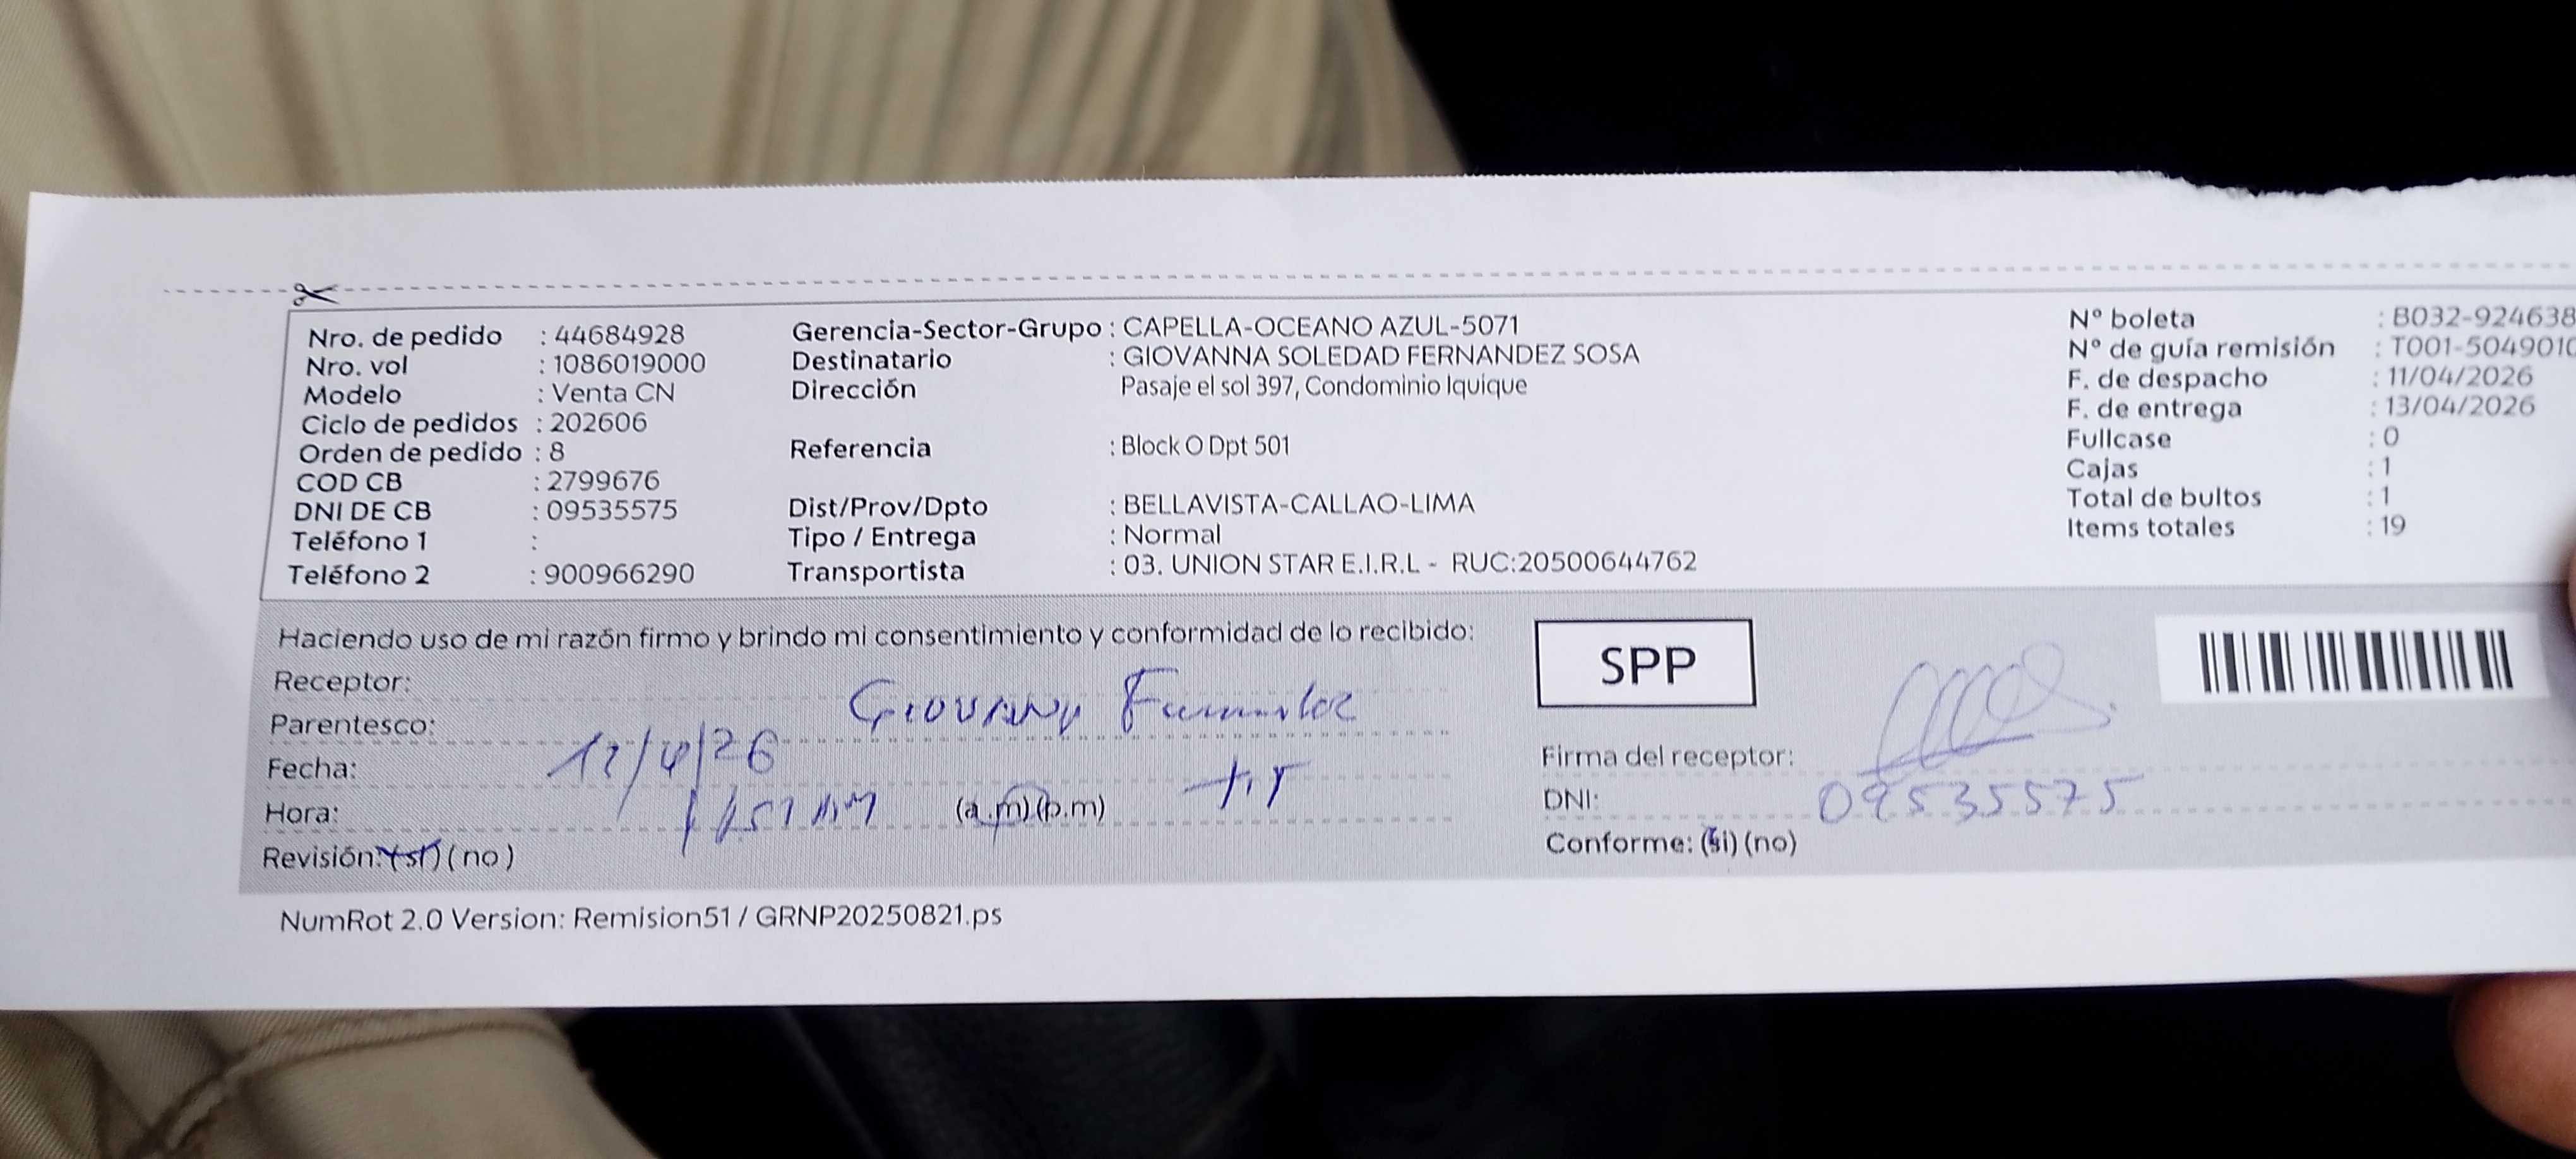 Nro. de pedido : 44684928
Nro. vol : 1086019000
Modelo : Venta CN
Ciclo de pedidos : 202606
Orden de pedido : 8
COD CB : 2799676
DNI DE CB : 09535575
Teléfono 1 :
Teléfono 2 : 900966290
Gerencia-Sector-Grupo : CAPELLA-OCEANO AZUL-5071
Destinatario : GIOVANNA SOLEDAD FERNANDEZ SOSA
Dirección Pasaje el sol 397, Condominio Iquique
Referencia : Block O Dpt 501
Dist/Prov/Dpto : BELLAVISTA-CALLAO-LIMA
Tipo / Entrega : Normal
Transportista : 03. UNION STAR E.I.R.L - RUC:20500644762
N° boleta : B032-924638
N° de guía remisión : T001-5049010
F. de despacho : 11/04/2026
F. de entrega : 13/04/2026
Fullcase : 0
Cajas : 1
Total de bultos : 1
Items totales : 19
Haciendo uso de mi razón firmo y brindo mi consentimiento y conformidad de lo recibido:
Receptor:
Parentesco:
Fecha:
Hora: (a.m)(p.m)
Revisión: (si) (no)
SPP
Firma del receptor:
DNI: 09535575
Conforme: (si) (no)
NumRot 2.0 Version: Remision51 / GRNP20250821.ps